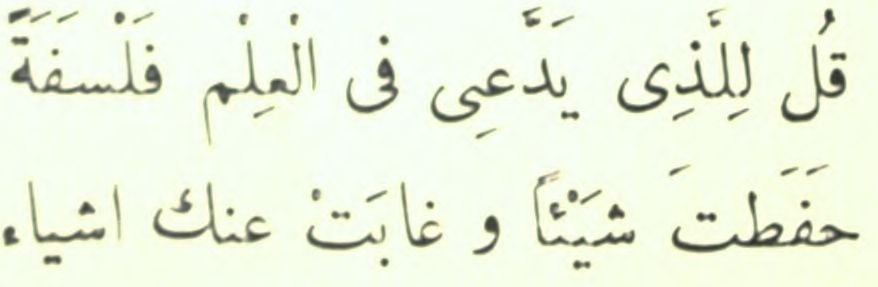 قُل لِلَّذِى يَدَّعِى فى الْعِلْم فَلْسَفَةً
حَفَظتَ شيَْئاً و غابَتْ عنك اشياء